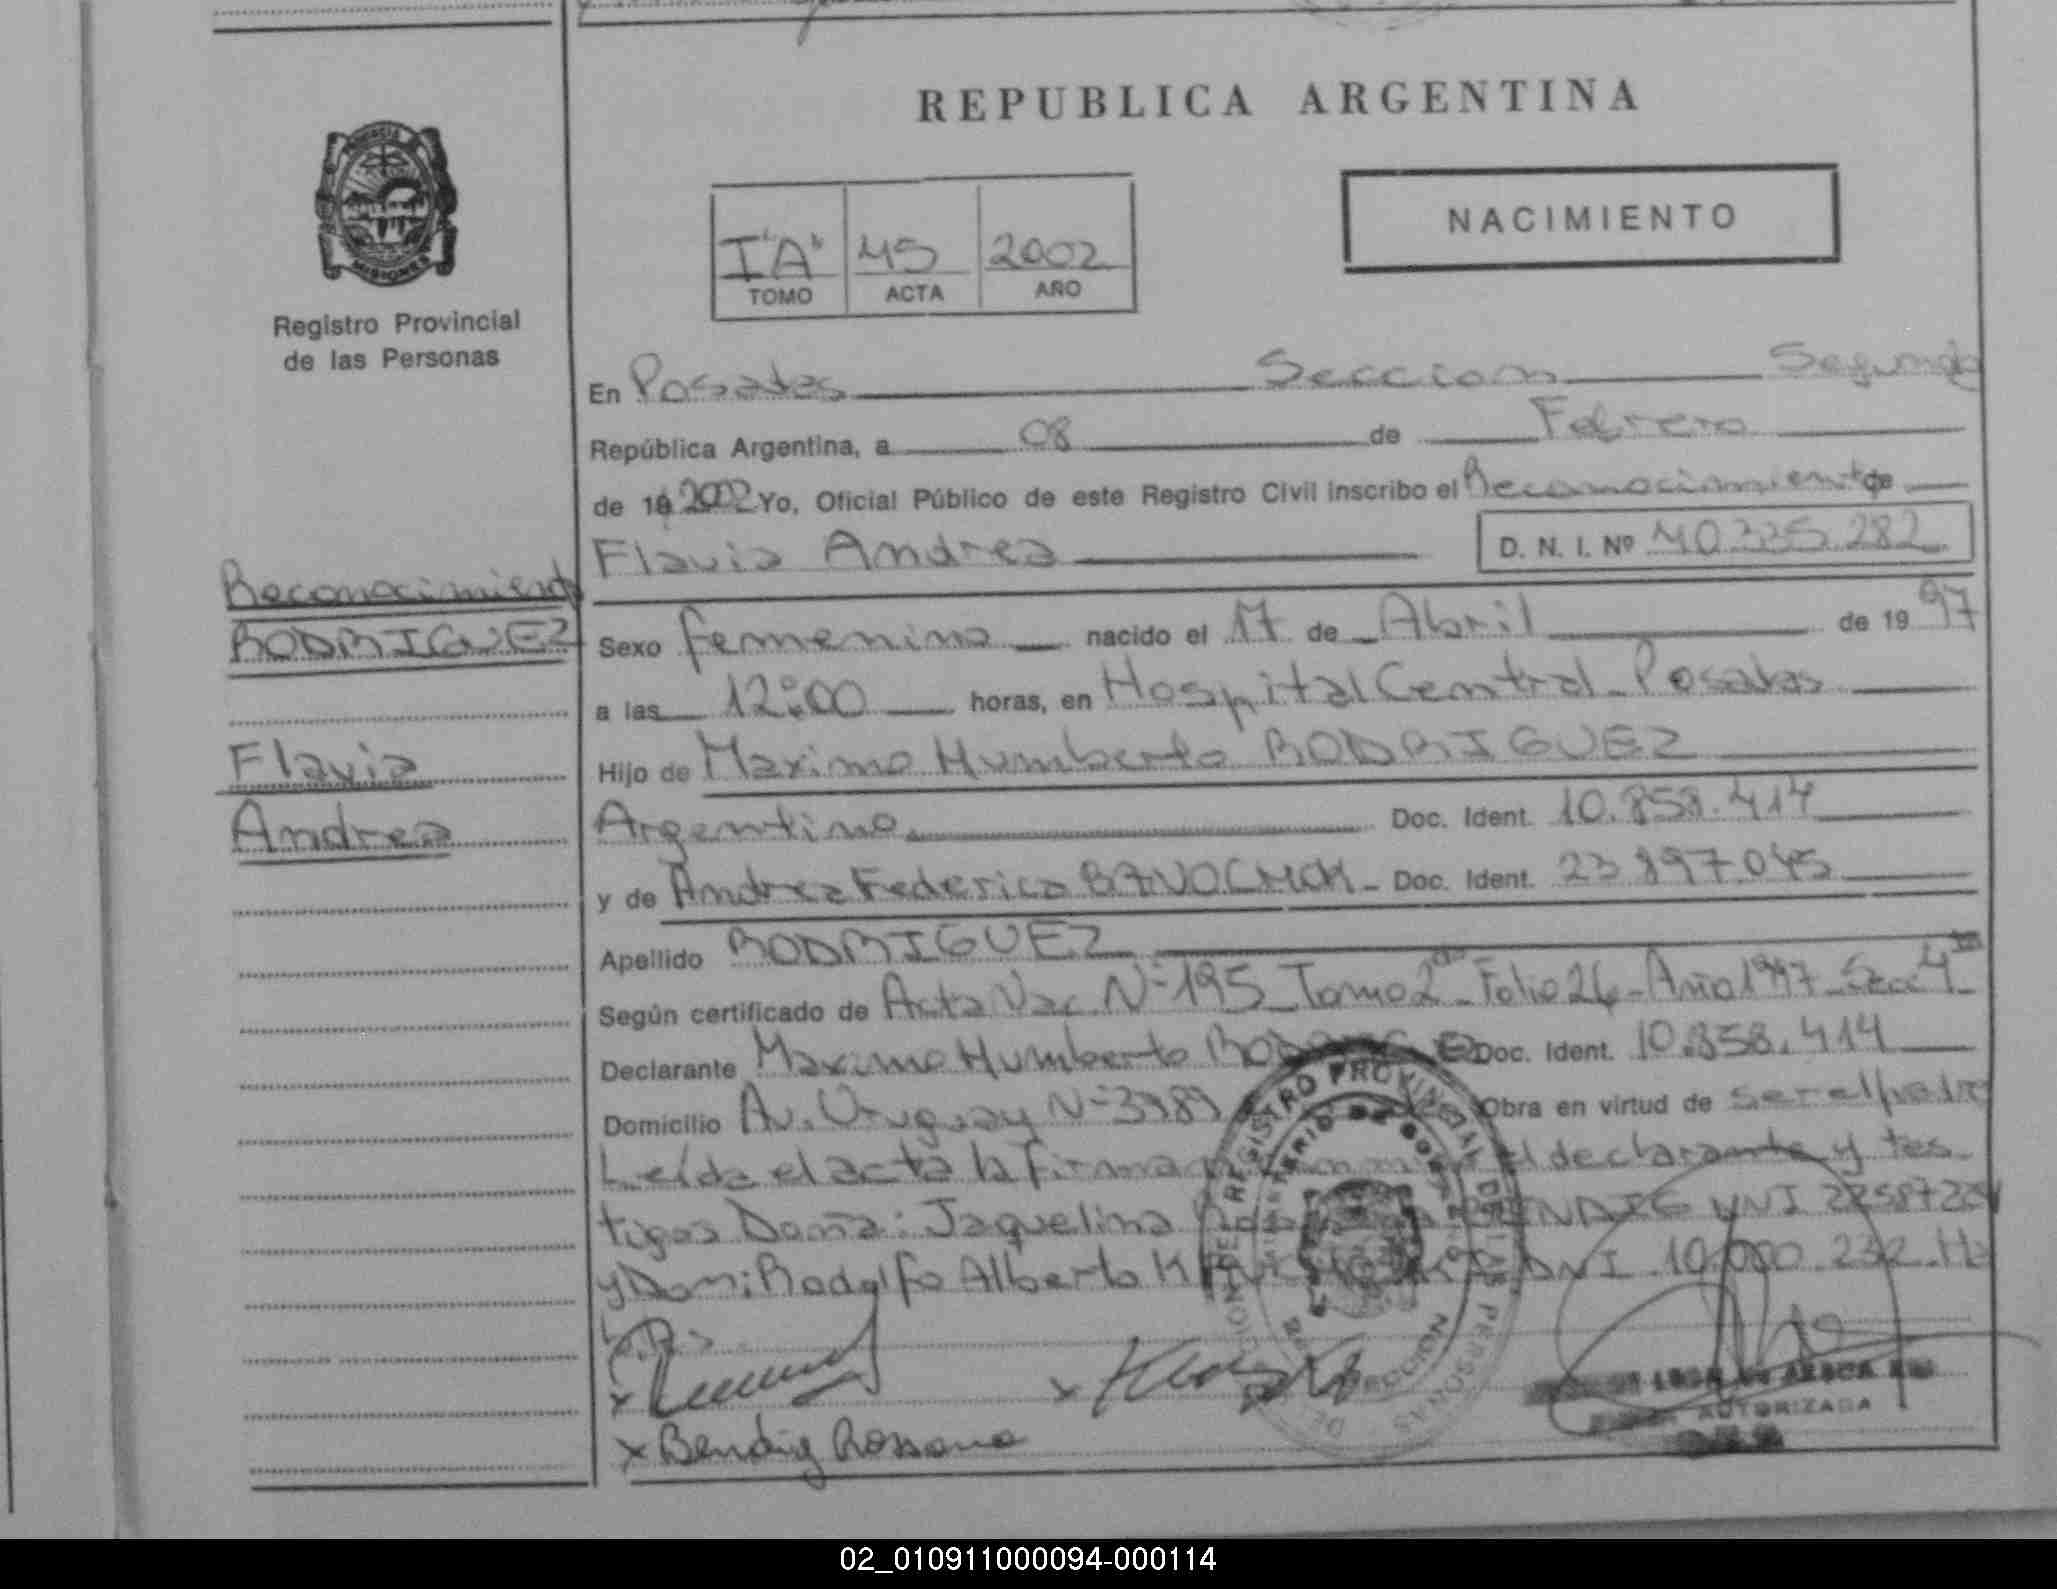 REPUBLICA ARGENTINA
NACIMIENTO
PROVINCIA
MISIONES
Registro Provincial
de las Personas
I "A" 45 2002
TOMO ACTA AÑO
En Posadas Seccion Segunda
República Argentina, a 08 de Febrero
de 19 2002 Yo, Oficial Público de este Registro Civil inscribo el Reconocimiento de
Flavia Andrea D. N. I. Nº 40.335.282
Reconocimiento
RODRIGUEZ
Flavia
Andrea
Sexo femenino nacido el 17 de Abril de 19 97
a las 12:00 horas, en Hospital Central - Posadas
Hijo de Maximo Humberto RODRIGUEZ
Argentino Doc. Ident. 10.858.414
y de Andrea Federica Doc. Ident. 23.897.045
Apellido RODRIGUEZ
Según certificado de Acta Nac. Nº 195 - Tomo 2do - Folio 26 - Año 1997 - Secc 4ta -
Declarante Maximo Humberto Doc. Ident. 10.858.414
Domicilio Av. Uruguay Nº 3989 Obra en virtud de ser el padre
Leída el acta la firman el declarante y tes
tigos Doña: Jaquelina BENDIG DNI
y Don: Rodolfo Alberto DNI 10.000.232. Ha
x
x
x Bendig Rossana
REGISTRO PROVINCIAL DE LAS PERSONAS
DIRECCION
AUTORIZADA
02_010911000094-000114